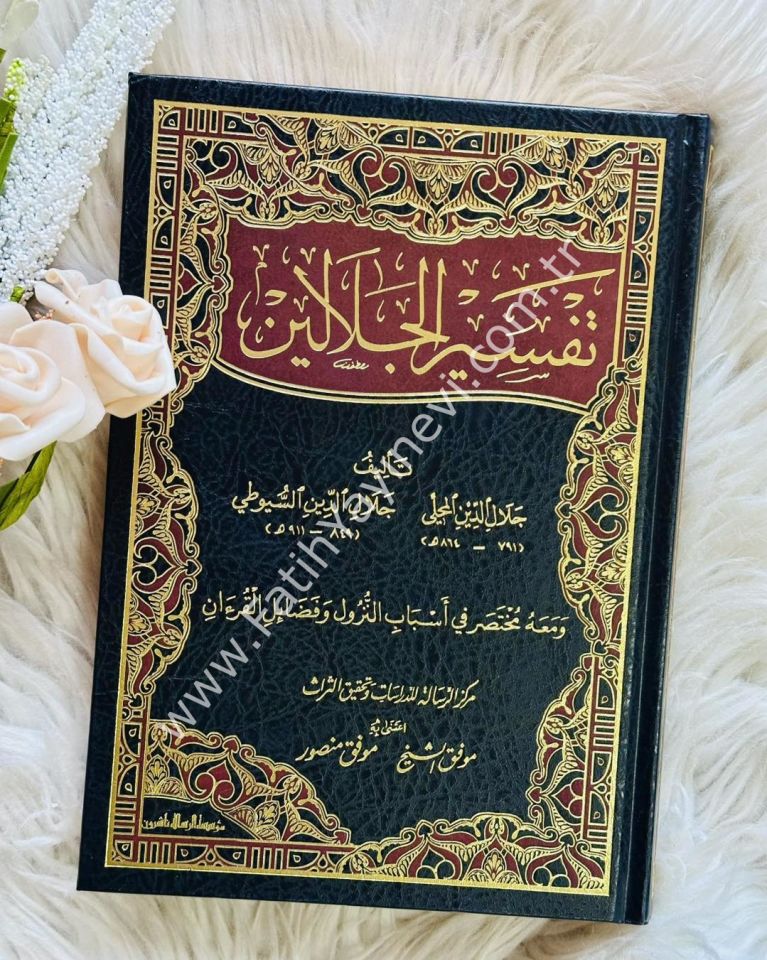 تفسير الجلالين
تأليف
جلال الدين المحلي جلال الدين السيوطي
(٧٩١ - ٨٦٤ هـ) (٨٤٩ - ٩١١ هـ)
وَمَعَهُ مُخْتَصَر في أَسْبَابِ النُّزُول وَفَضَائِلِ الْقُرْءَانِ
مركز الرسالة للدراسات وتحقيق التراث
اعتنى به
موفق الشيخ موفق منصور
مؤسسة الرسالة ناشرون
www.FatihYayinevi.com.tr